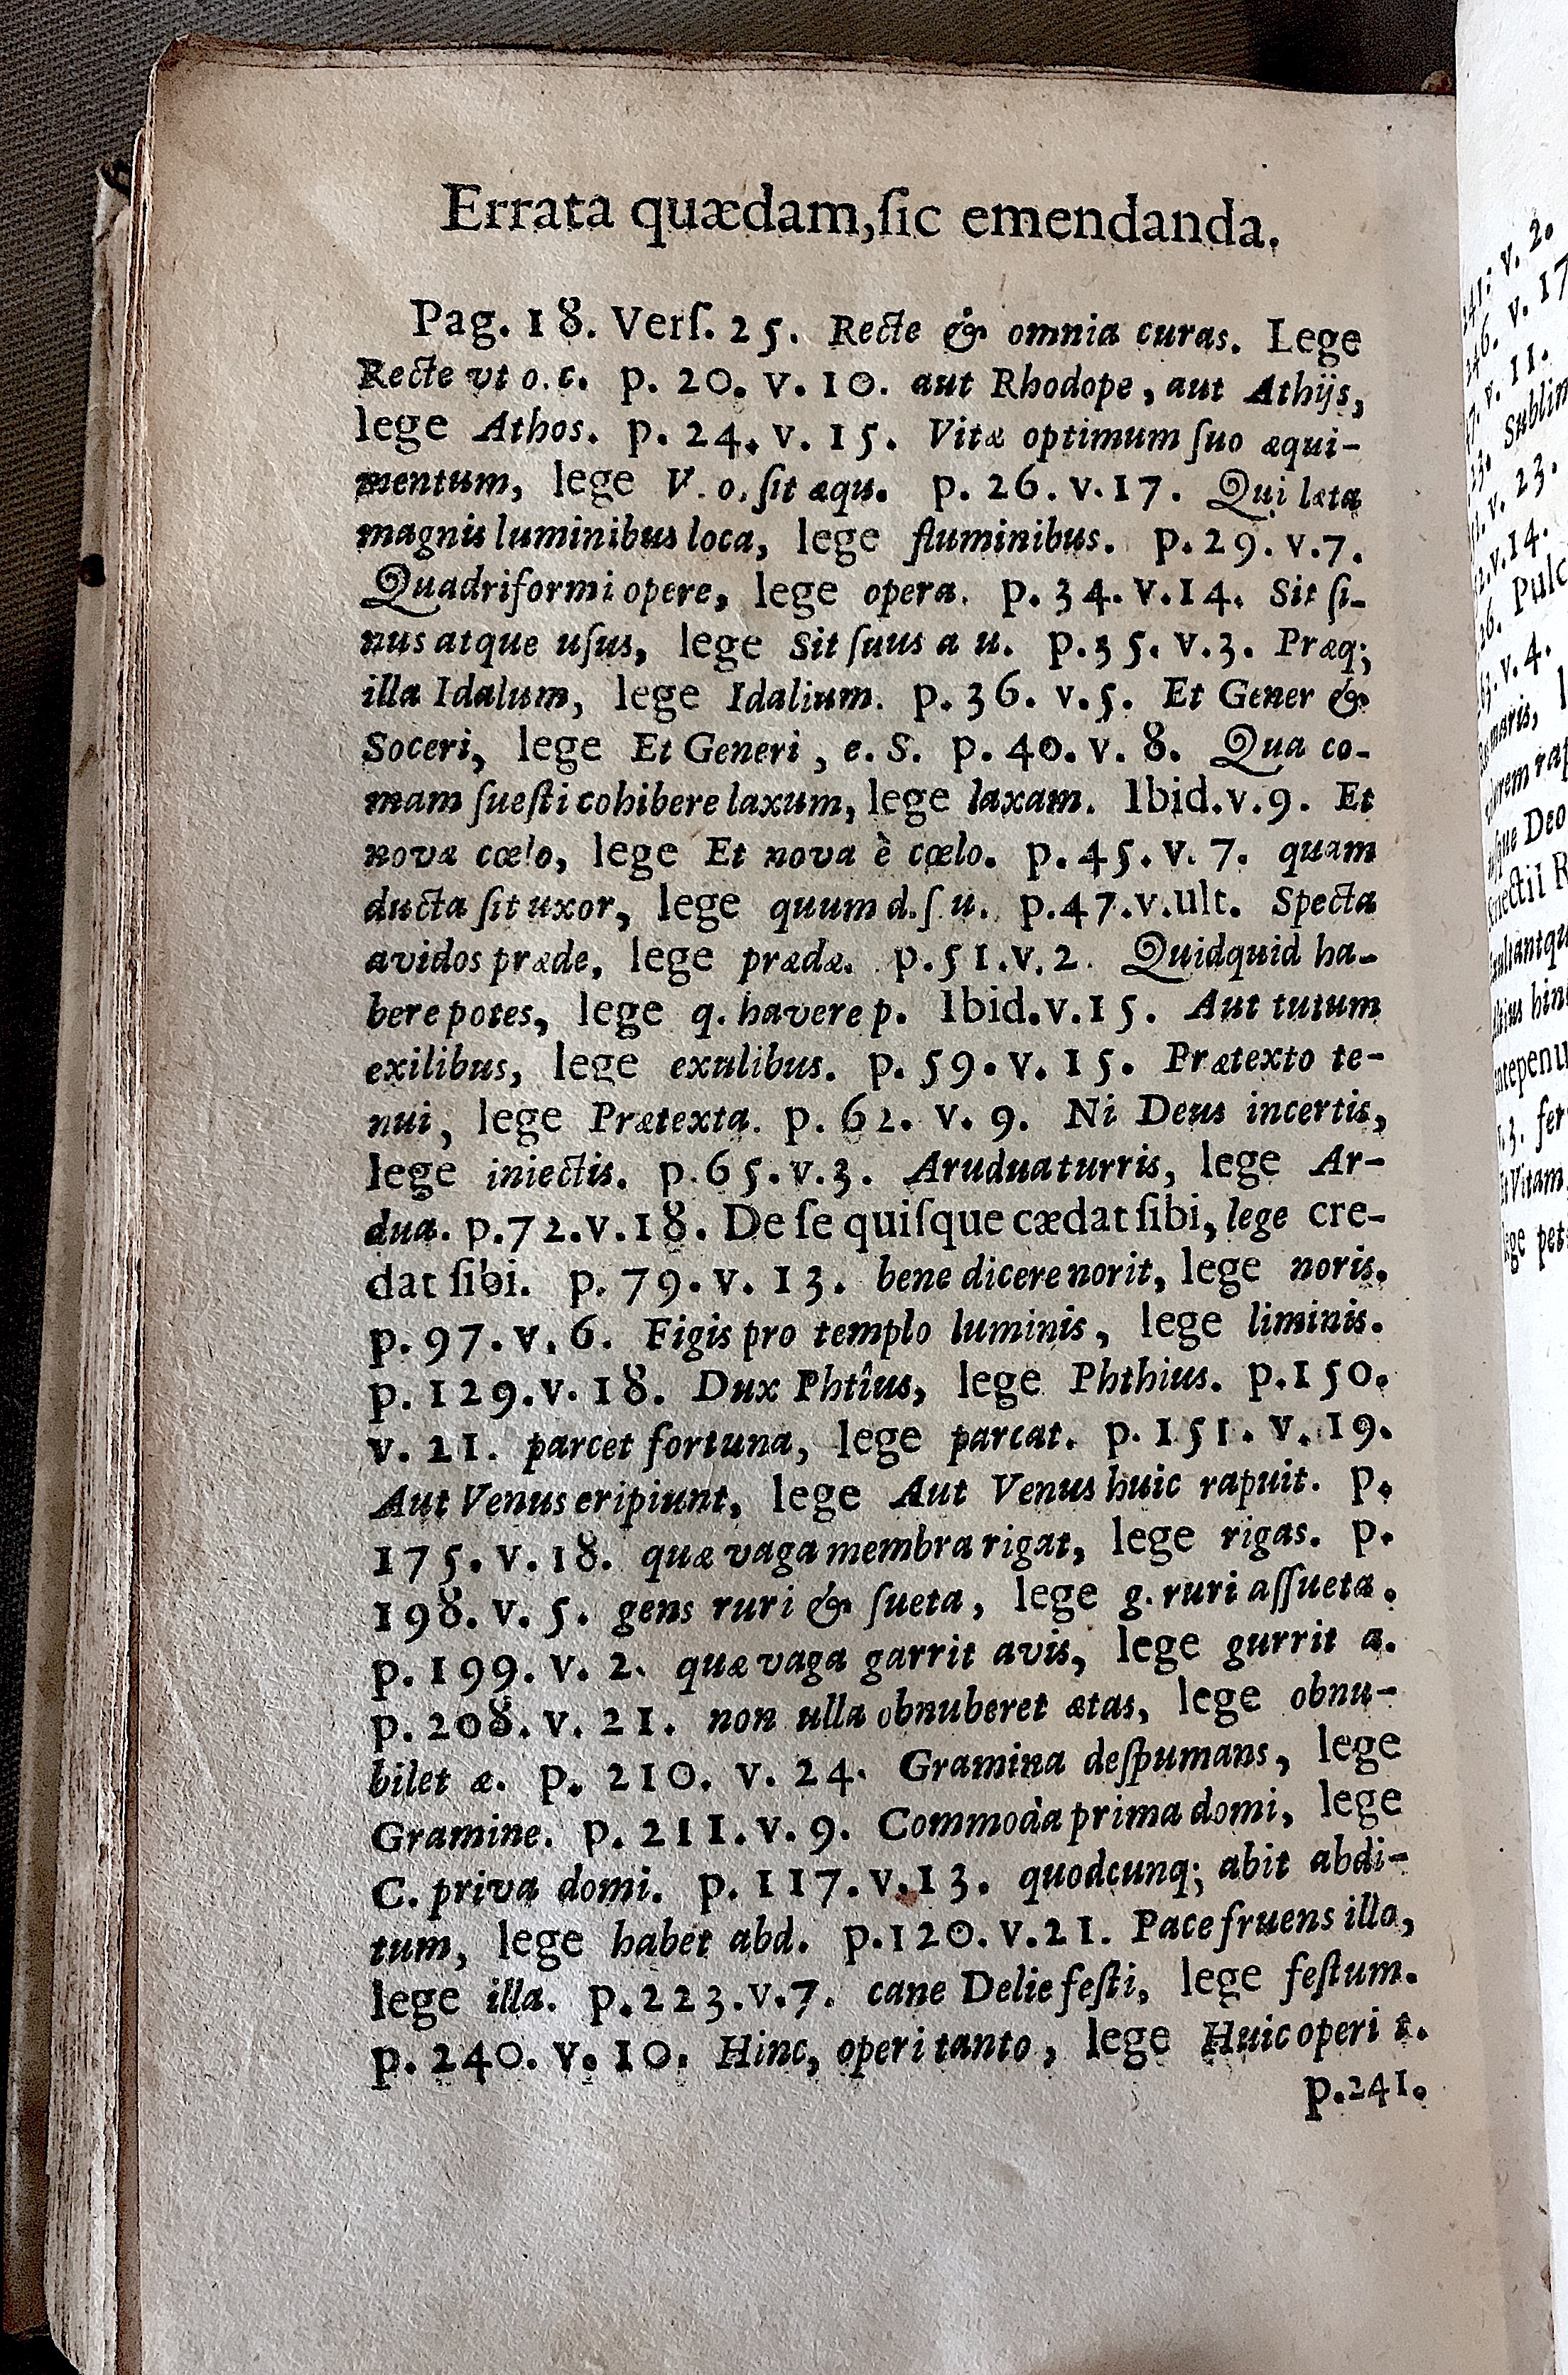 Errata quædam, ſic emendanda.
Pag. 18. Verſ. 25. Recte & omnia curas. Lege
Recte vt o. c. p. 20. v. 10. aut Rhodope, aut Athijs,
lege Athos. p. 24. v. 15. Vitæ optimum ſuo æqui-
mentum, lege V. o. ſit æqu. p. 26. v. 17. Qui læta
magnis luminibus loca, lege fluminibus. p. 29. v. 7.
Quadriformi opere, lege opera. p. 34. v. 14. Sit ſi-
nus atque uſus, lege Sit ſuus a u. p. 35. v. 3. Præq;
illa Idalum, lege Idalium. p. 36. v. 5. Et Gener &
Soceri, lege Et Generi, e. S. p. 40. v. 8. Qua co-
mam ſueſti cohibere laxum, lege laxam. Ibid. v. 9. Et
nova cœlo, lege Et nova è cœlo. p. 45. v. 7. quam
ducta ſit uxor, lege quum d. ſ. u. p. 47. v. ult. Specta
avidos præde, lege prædæ. p. 51. v. 2. Quidquid ha-
bere potes, lege q. havere p. Ibid. v. 15. Aut tutum
exilibus, lege exulibus. p. 59. v. 15. Prætexto te-
nui, lege Prætexta. p. 62. v. 9. Ni Deus incertis,
lege iniectis. p. 65. v. 3. Aruduaturris, lege Ar-
dua. p. 72. v. 18. De ſe quiſque cædat ſibi, lege cre-
dat ſibi. p. 79. v. 13. bene dicere norit, lege noris.
p. 97. v. 6. Figis pro templo luminis, lege liminis.
p. 129. v. 18. Dux Phtîus, lege Phthius. p. 150.
v. 21. parcet fortuna, lege parcat. p. 151. v. 19.
Aut Venus eripiunt, lege Aut Venus huic rapuit. p.
175. v. 18. quæ vaga membra rigat, lege rigas. p.
198. v. 5. gens ruri & ſueta, lege g. ruri aſſueta.
p. 199. v. 2. quæ vaga garrit avis, lege gurrit a.
p. 208. v. 21. non ulla obnuberet ætas, lege obnu-
bilet æ. p. 210. v. 24. Gramina deſpumans, lege
Gramine. p. 211. v. 9. Commoda prima domi, lege
C. priva domi. p. 117. v. 13. quodcunq; abit abdi-
tum, lege habet abd. p. 120. v. 21. Pace fruens illo,
lege illa. p. 223. v. 7. cane Delie feſti, lege feſtum.
p. 240. v. 10. Hinc, operi tanto, lege Huic operi t.
p. 241.
241: v. 2.
246. v. 17
v. 11.
Sublim
v. 23.
v. 14.
Pulc
v. 4.